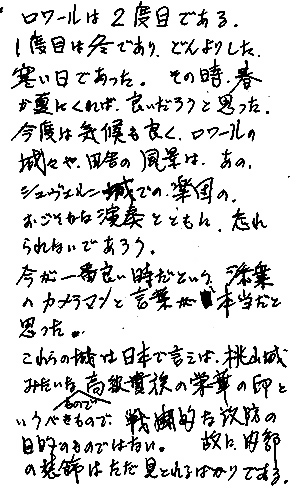 ロワールは2度目である.
1度目は冬であり、どんよりした、
寒い日であった。その時、春
か夏にくれば、良いだろうと思った.
今度は気候も良く、ロワールの
城々や、田舎の風景は、あの、
シュヴェルニー城での、楽団の、
おごそかな演奏とともに、忘れ
られないであろう.
今が一番良い時だという、添乗
のカメラマンの言葉が本当だと
思った。
これらの城は日本で言えば、桃山城
みたいなもので高級貴族の栄華の印と
いうべきもので、戦闘的な設防の
目的のものではない。故に、内部
の装飾はただ見とれるばかりである.